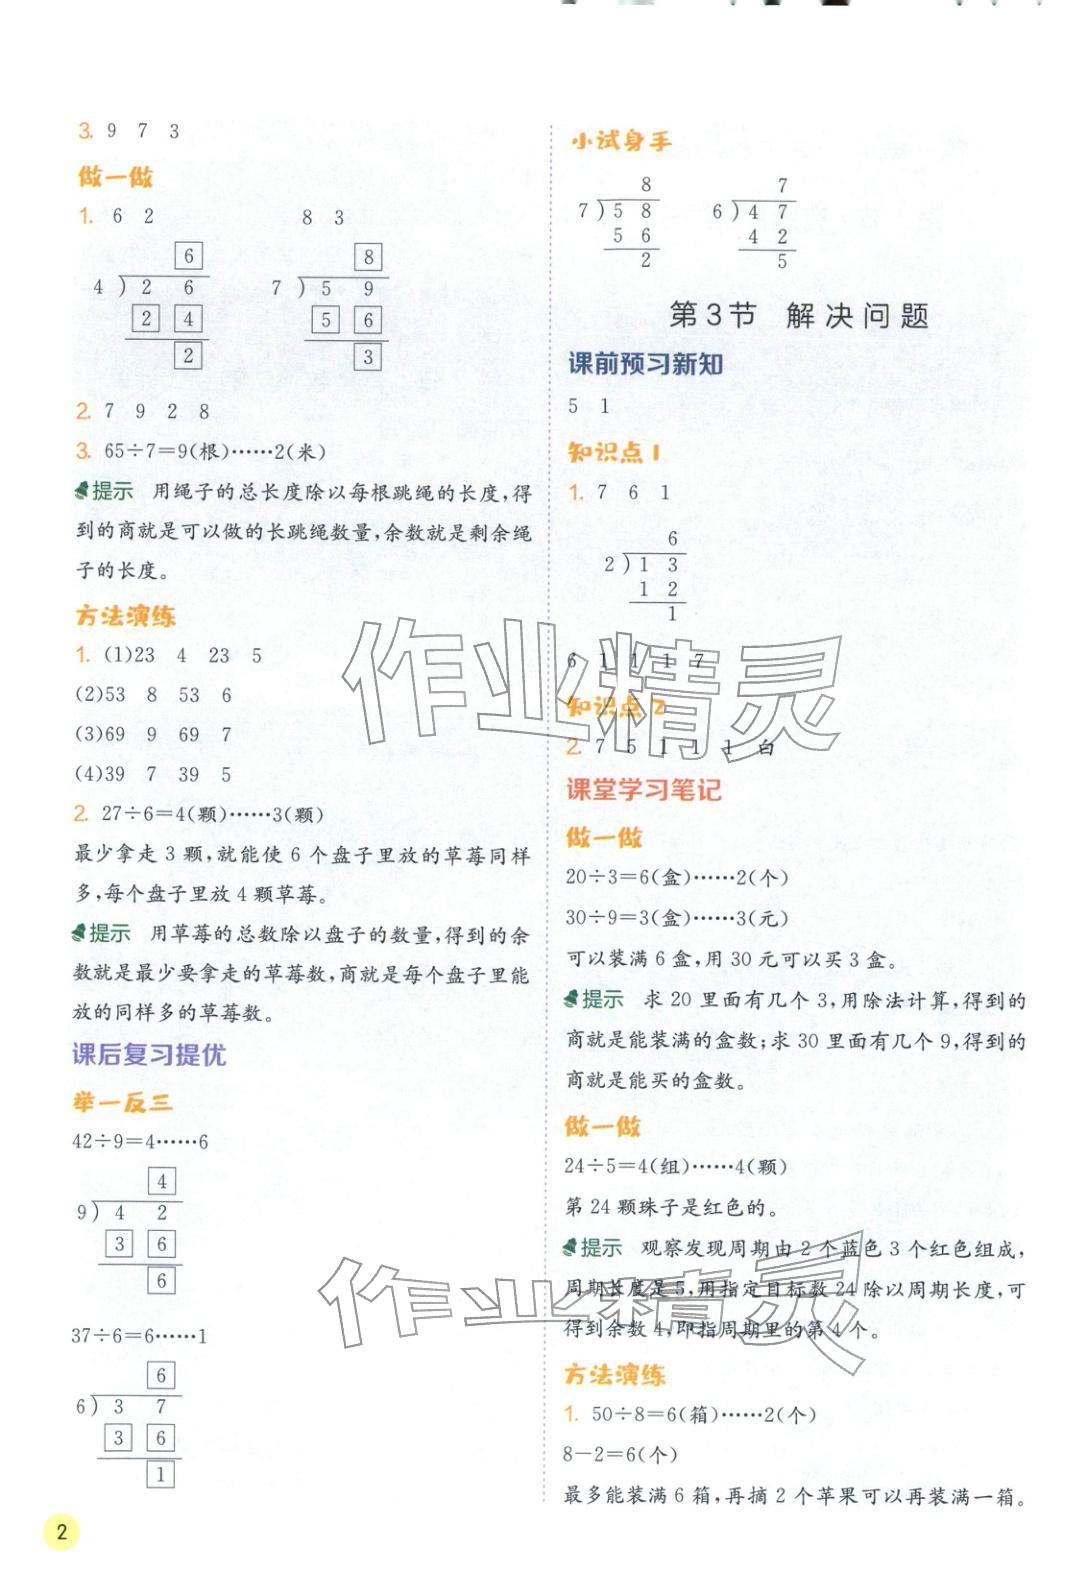 3. 9 7 3
做一做
1. 6 2 8 3
6
4 ) 2 6
2 4
2
8
7 ) 5 9
5 6
3
2. 7 9 2 8
3. 65÷7=9(根)……2(米)
提示 用绳子的总长度除以每根跳绳的长度,得
到的商就是可以做的长跳绳数量,余数就是剩余绳
子的长度。
方法演练
1. (1)23 4 23 5
(2)53 8 53 6
(3)69 9 69 7
(4)39 7 39 5
2. 27÷6=4(颗)……3(颗)
最少拿走 3 颗,就能使 6 个盘子里放的草莓同样
多,每个盘子里放 4 颗草莓。
提示 用草莓的总数除以盘子的数量,得到的余
数就是最少要拿走的草莓数,商就是每个盘子里能
放的同样多的草莓数。
课后复习提优
举一反三
42÷9=4……6
4
9 ) 4 2
3 6
6
37÷6=6……1
6
6 ) 3 7
3 6
1
2
小试身手
8
7 ) 5 8
5 6
2
7
6 ) 4 7
4 2
5
第3节 解决问题
课前预习新知
5 1
知识点 1
1. 7 6 1
6
2 ) 1 3
1 2
1
6 1 1 1 7
知识点 2
2. 7 5 1 1 1 白
课堂学习笔记
做一做
20÷3=6(盒)……2(个)
30÷9=3(盒)……3(元)
可以装满 6 盒,用 30 元可以买 3 盒。
提示 求 20 里面有几个 3,用除法计算,得到的
商就是能装满的盒数;求 30 里面有几个 9,得到的
商就是能买的盒数。
做一做
24÷5=4(组)……4(颗)
第 24 颗珠子是红色的。
提示 观察发现周期由 2 个蓝色 3 个红色组成,
周期长度是 5,用指定目标数 24 除以周期长度,可
得到余数 4,即指周期里的第 4 个。
方法演练
1. 50÷8=6(箱)……2(个)
8-2=6(个)
最多能装满 6 箱,再摘 2 个苹果可以再装满一箱。
作业精灵
作业精灵